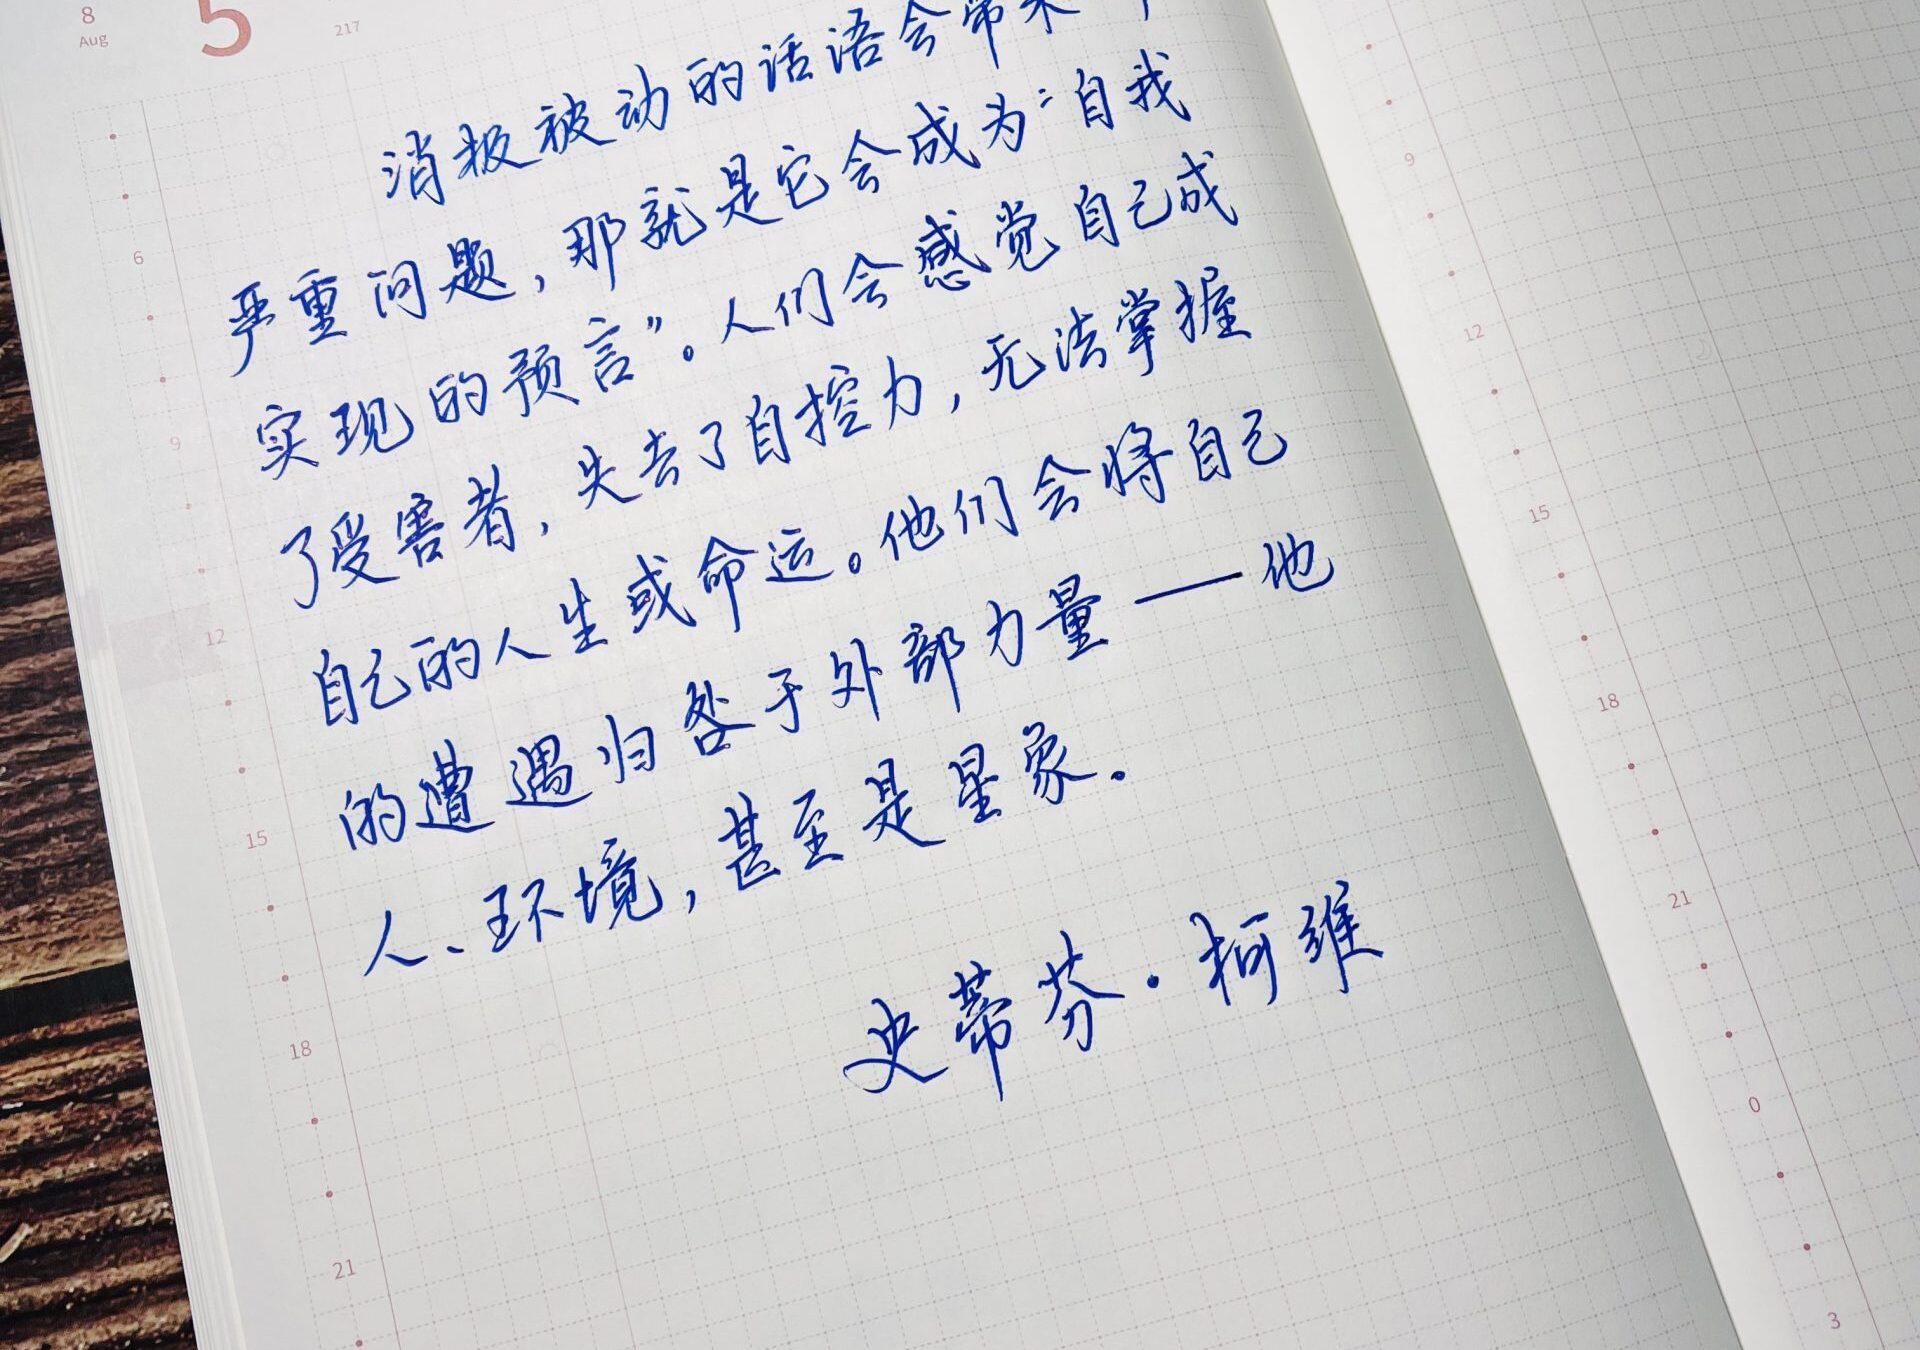 8
Aug
5
217
消极被动的话语会带来一个
严重问题，那就是它会成为“自我
实现的预言”。人们会感觉自己成
了受害者，失去了自控力，无法掌握
自己的人生或命运。他们会将自己
的遭遇归咎于外部力量——他
人、环境，甚至是星象。
史蒂芬·柯维
6
9
12
15
18
21
9
12
15
18
21
0
3